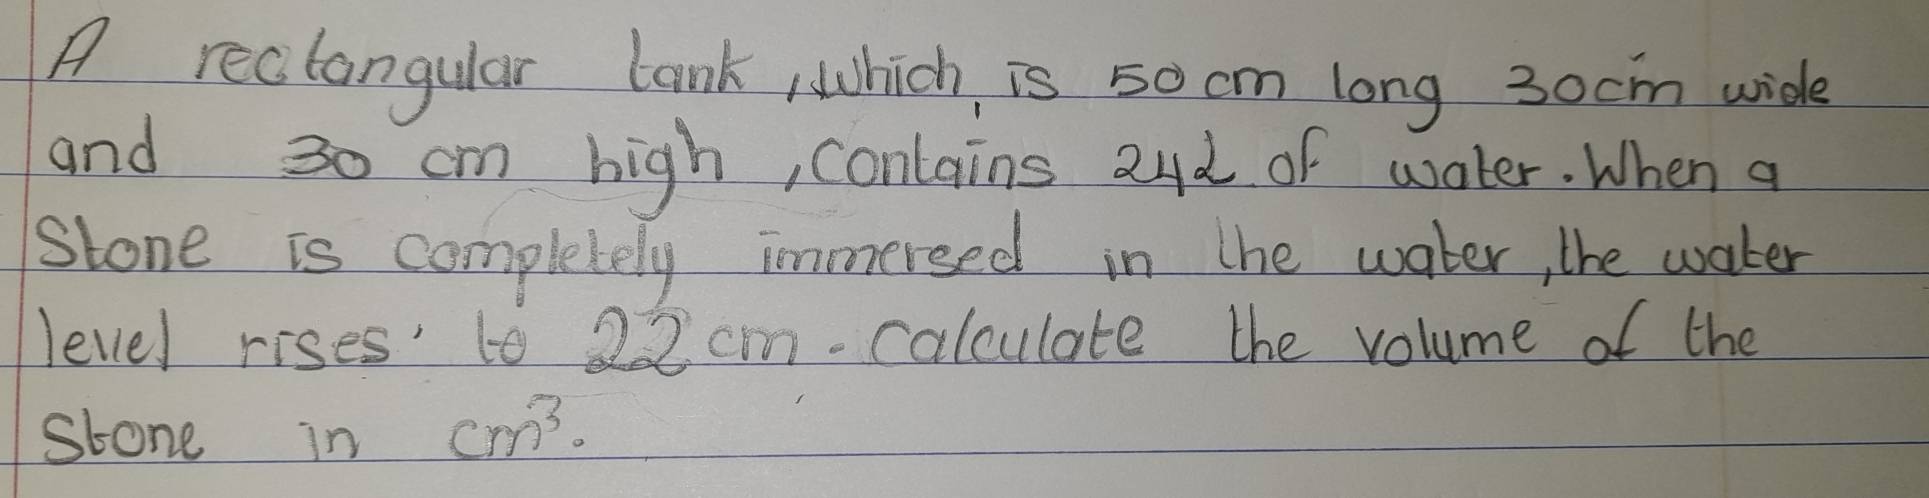 A rectangular tank, which, is 50 cm long 30cm wide
and 30 cm high, contains 24L of water. When a
Stone is completely immersed in the water, the water
level rises to 22 cm. Calculate the volume of the
Stone in cm³.